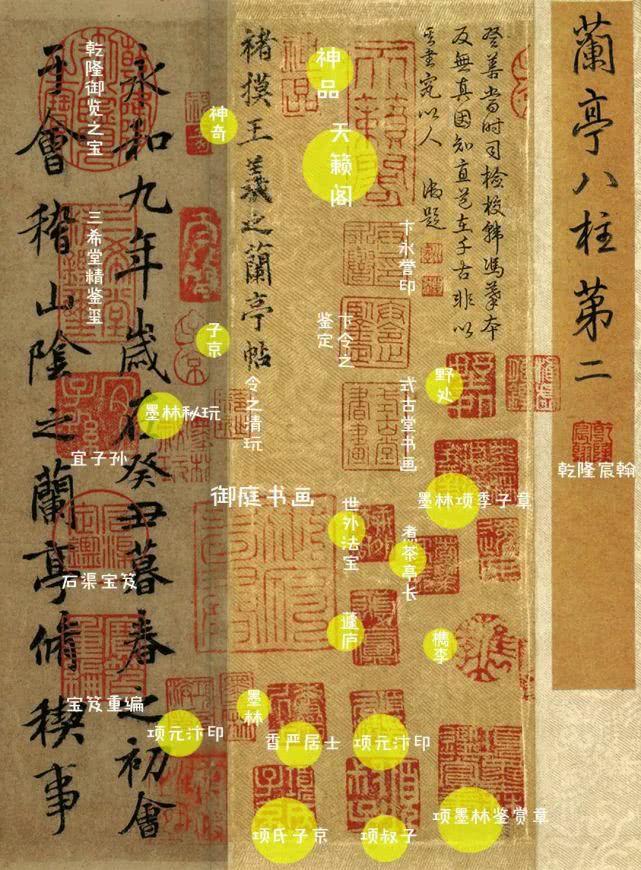 蘭亭八柱第二
乾隆宸翰
登善當時司檢校韓馮摹本
反無真因知直道在千古非以
其書寔以人 御題
褚摸王羲之蘭亭帖
永和九年歲在癸丑暮春之初會
于會稽山陰之蘭亭脩稧事
神品
天籁阁
神奇
乾隆御览之宝
三希堂精鉴玺
卞永誉印
卞令之
鉴定
子京
野处
式古堂书画
令之清玩
墨林秘玩
宜子孙
御庭书画
墨林项季子章
世外法宝
煮茶亭长
石渠宝笈
蘧庐
檇李
宝笈重编
墨林
项元汴印
香严居士
项元汴印
项氏子京
项叔子
项墨林鉴赏章